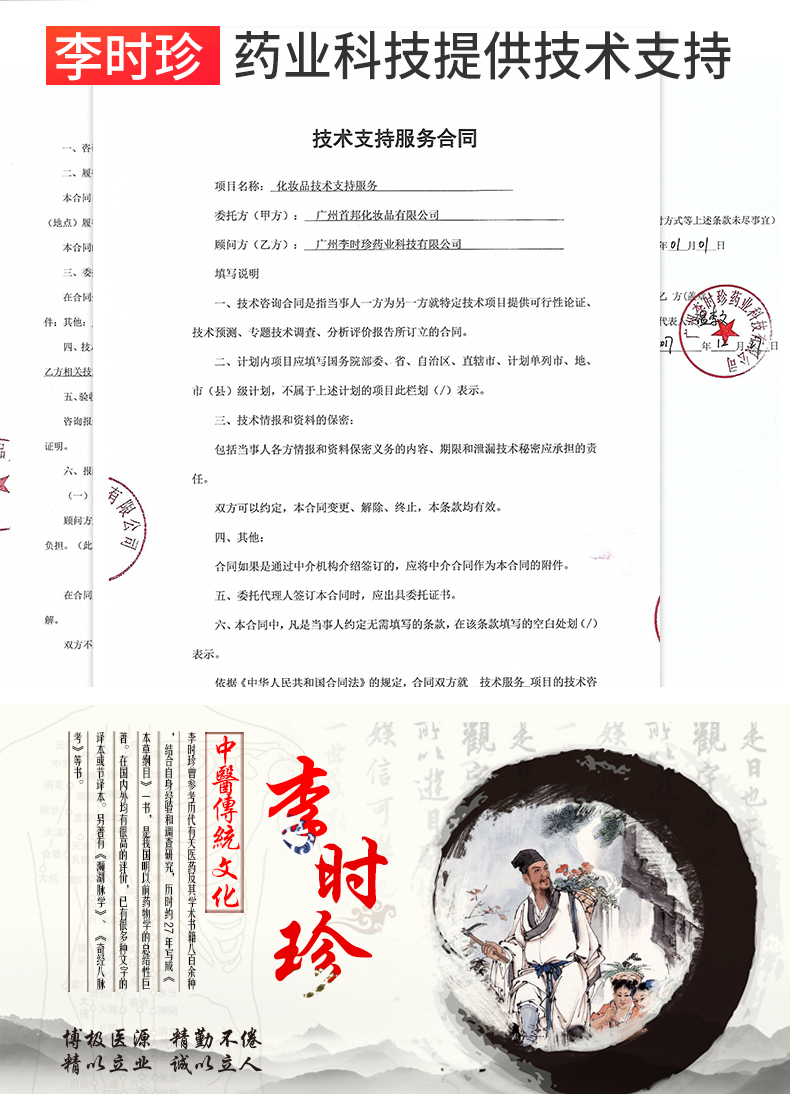 李时珍 药业科技提供技术支持
技术支持服务合同
项目名称: 化妆品技术支持服务
委托方(甲方): 广州首邦化妆品有限公司
顾问方(乙方): 广州李时珍药业科技有限公司
填写说明
一、技术咨询合同是指当事人一方为另一方就特定技术项目提供可行性论证、
技术预测、专题技术调查、分析评价报告所订立的合同。
二、计划内项目应填写国务院部委、省、自治区、直辖市、计划单列市、地、
市(县)级计划,不属于上述计划的项目此栏划(/)表示。
三、技术情报和资料的保密:
包括当事人各方情报和资料保密义务的内容、期限和泄漏技术秘密应承担的责
任。
双方可以约定,本合同变更、解除、终止,本条款均有效。
四、其他:
合同如果是通过中介机构介绍签订的,应将中介合同作为本合同的附件。
五、委托代理人签订本合同时,应出具委托证书。
六、本合同中,凡是当事人约定无需填写的条款,在该条款填写的空白处划(/)
表示。
依据《中华人民共和国合同法》的规定,合同双方就 技术服务 项目的技术咨
一、咨
二、履
本合同
(地点)履
本合同
三、委
在合同
件:其他:
四、技
乙方相关技
五、验收
咨询报
证明。
六、报
(一)
顾问方
负担。(此
在合同
解。
双方不
有限公司
方式等上述条款未尽事宜)
年01月01日
乙 方(盖
代表人
年12月 日
广州李时珍药业科技有限公司
李时珍
中醫傳統文化
李时珍曾参考历代有关医药及其学术书籍八百余种
,结合自身经验和调查研究,历时约27年写成《
本草纲目》一书,是我国明以前药物学的总结性巨
著。在国内外均有很高的评价,已有很多种文字的
译本或节译本。另著有《濒湖脉学》、《奇经八脉
考》等书。
博极医源 精勤不倦
精以立业 诚以立人